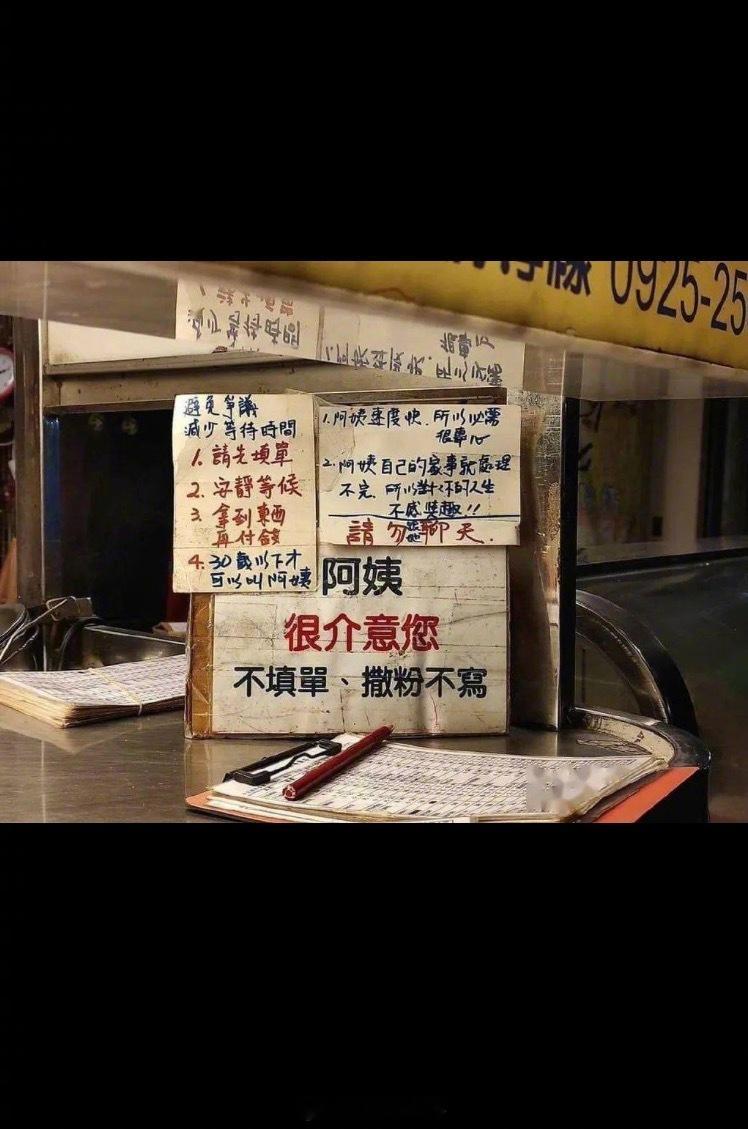 0925-25
避免爭議
減少等待時間
1. 請先填單
2. 安靜等候
3. 拿到東西
再付錢
4. 30歲以下才
可以叫阿姨
1. 阿姨速度快. 所以必需
很專心
2. 阿姨自己的家事就處理
不完. 所以對 的人生
不感興趣!!
請勿 聊天.
阿姨
很介意您
不填單、撒粉不寫